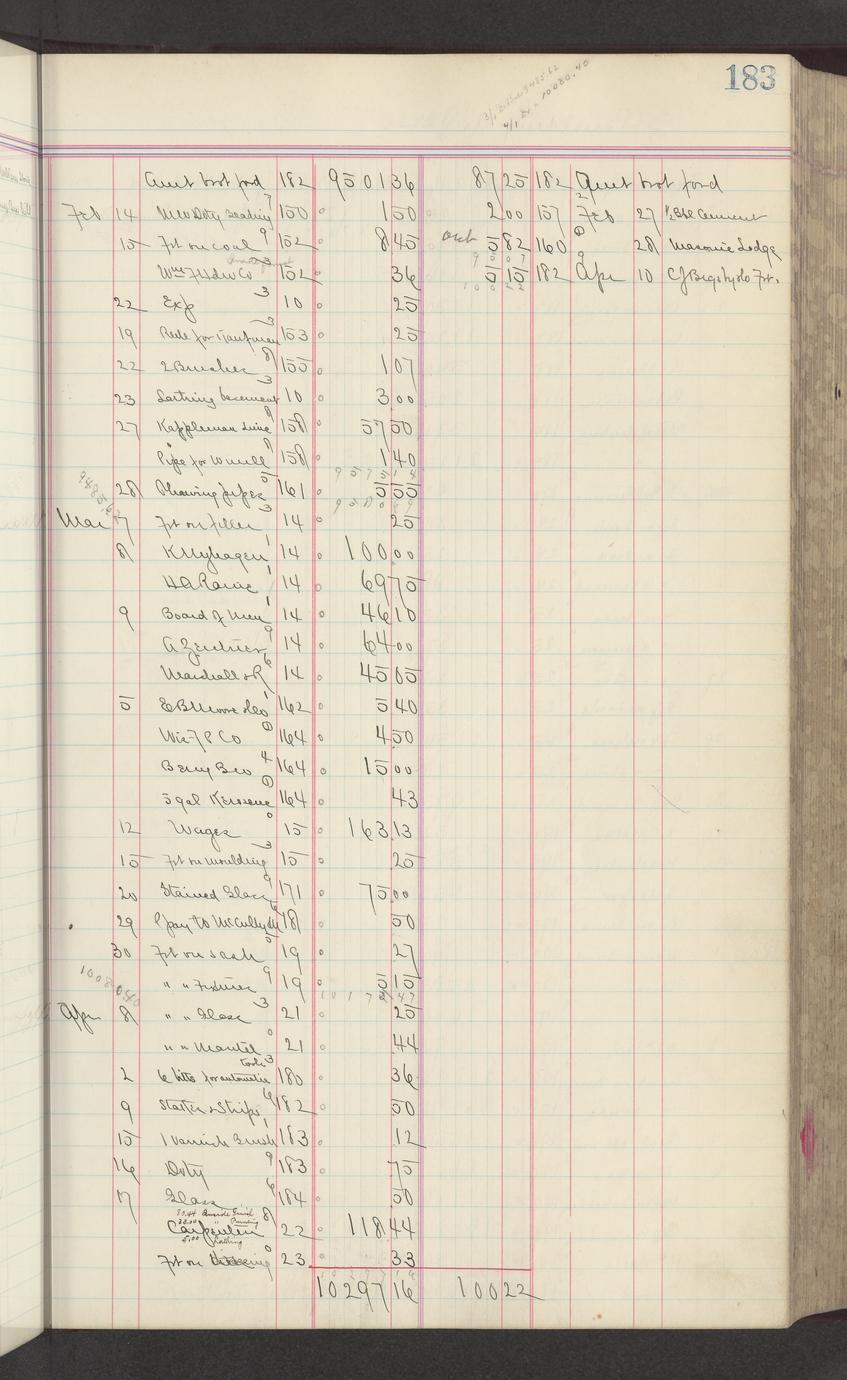 183
4/1 Dr " 10080.40
Amt brot ford 182 9501 36 87 25 182 Amt brot ford
Feb 14 150 1 50 2 00 157 Feb 27 1/2 Bbl Cement
15 Frt on coal 152 8 45 out 5 82 160 28 Masonic Lodge
Wm F Hdw Co 152 36 5 15 182 Apr 10 Frt.
22 Exp 10 25
19 153 25
22 2 Brushes 155 1 07
23 Lathing basement 10 3 00
27 Kappleman Line 158 57 50
Pipe for W mill 158 1 40
28 161 5 55
Mar 7 Frt on filler 14 25
8 K Myhagen 14 100 00
14 69 75
9 Board of Men 14 46 10
A Zentner 14 64 00
Marshall & R 14 45 05
5 E B Moore & Co 162 5 40
Wis F P Co 164 4 50
Berry Bro 164 15 00
5 gal Kerosene 164 43
12 Wages 15 163 13
15 Frt on moulding 15 25
20 Stained Glass 171 75 00
29 to McCully 181 50
30 Frt on sash 19 27
" " Fixtures 19 5 15
Apr 8 " " Glass 21 25
" " Mantel 21 44
tools
2 6 bits for automatic 180 36
9 & Strips 182 50
15 1 Varnish Brush 183 12
16 Doty 183 75
17 Glass 184 50
Carpenter 22 118 44
5.00 Lathing
Frt on 23 33
10297 16 100 22